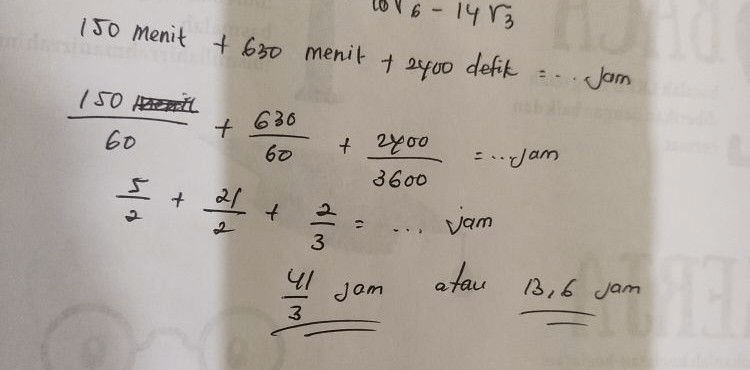 10√6 - 14√3
150 menit + 630 menit + 2400 detik = ... Jam
150/60 + 630/60 + 2400/3600 = ... Jam
5/2 + 21/2 + 2/3 = ... Jam
41/3 Jam atau 13,6 Jam